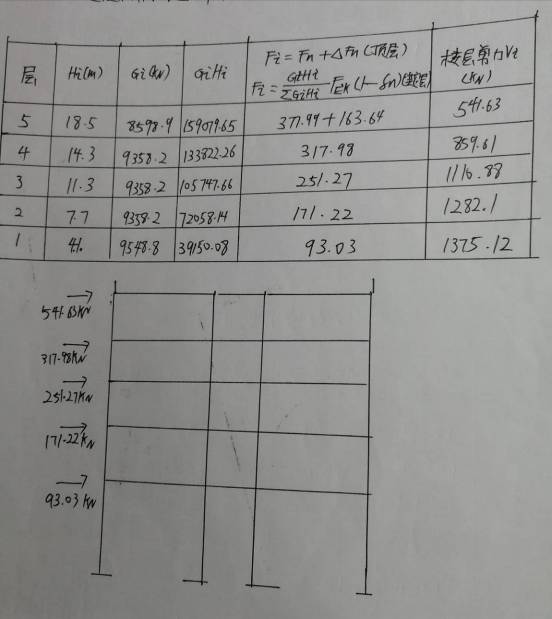 层 Hi(m) Gi(kN) GiHi Fi=Fn+ΔFn(顶层) 楼层剪力Vi
Fi=GiHi/ΣGiHi FEK(1-δn)(其它层) (KN)
5 18.5 8598.9 159079.65 377.99+163.64 541.63
4 14.3 9358.2 133822.26 317.98 859.61
3 11.3 9358.2 105747.66 251.27 1110.88
2 7.7 9358.2 72058.14 171.22 1282.1
1 4.1 9548.8 39150.08 93.03 1375.12
541.63KN
317.98KN
251.27KN
171.22KN
93.03KN